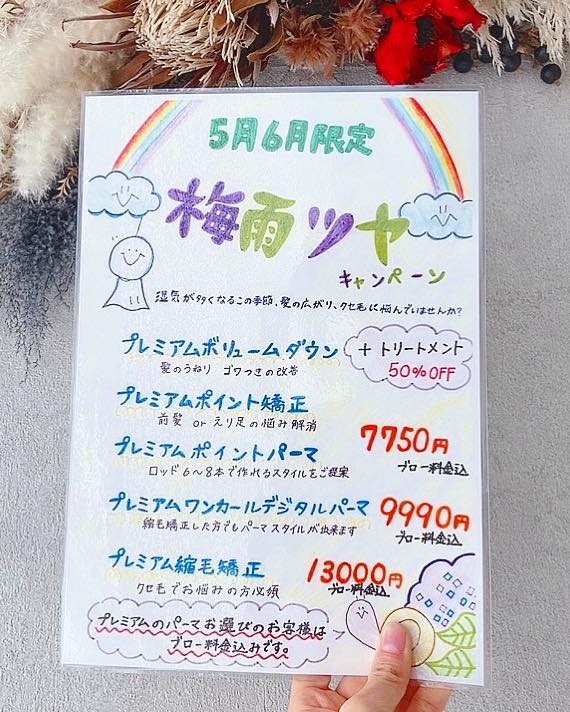 5月6月限定
梅雨ツヤ
キャンペーン
湿気が多くなるこの季節、髪の広がり、クセ毛に悩んでいませんか?
プレミアムボリュームダウン
髪のうねり ゴワつきの改善
+トリートメント
50%OFF
プレミアムポイント矯正
前髪 or えり足の悩み解消
プレミアムポイントパーマ
ロッド6〜8本で作れるスタイルをご提案
7750円
ブロー料金込
プレミアムワンカールデジタルパーマ
縮毛矯正した方でもパーマスタイルが出来ます
9990円
ブロー料金込
プレミアム縮毛矯正
クセ毛でお悩みの方必須
13000円
ブロー料金込
プレミアムのパーマお選びのお客様は
ブロー料金込みです。